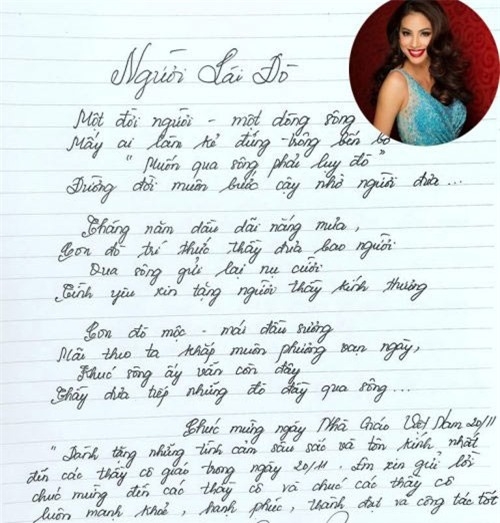 Người Lái Đò
Một đời người - một dòng sông
Mấy ai làm kẻ đứng trông bến bờ
"Muốn qua sông phải luy đò"
Đường đời muôn bước cậy nhờ người đưa ...
Tháng năm dầu dãi nắng mưa,
Con đò trí thức thầy đưa bao người
Qua sông gửi lại nụ cười
Tình yêu xin tặng người thầy kính thương
Con đò mộc - mái đầu sương
Mãi theo ta khắp muôn phương vạn ngày,
Khúc sông ấy vẫn còn đây
Thầy đưa tiếp những đò đầy qua sông...
Chúc mừng ngày Nhà Giáo Việt Nam 20/11
"Dành tặng những tình cảm sâu sắc và tôn kính nhất
đến các thầy cô giáo trong ngày 20/11. Em xin gửi lời
chúc mừng đến các thầy cô và chúc các thầy cô
luôn mạnh khoẻ, hạnh phúc, thành đạt và công tác tốt